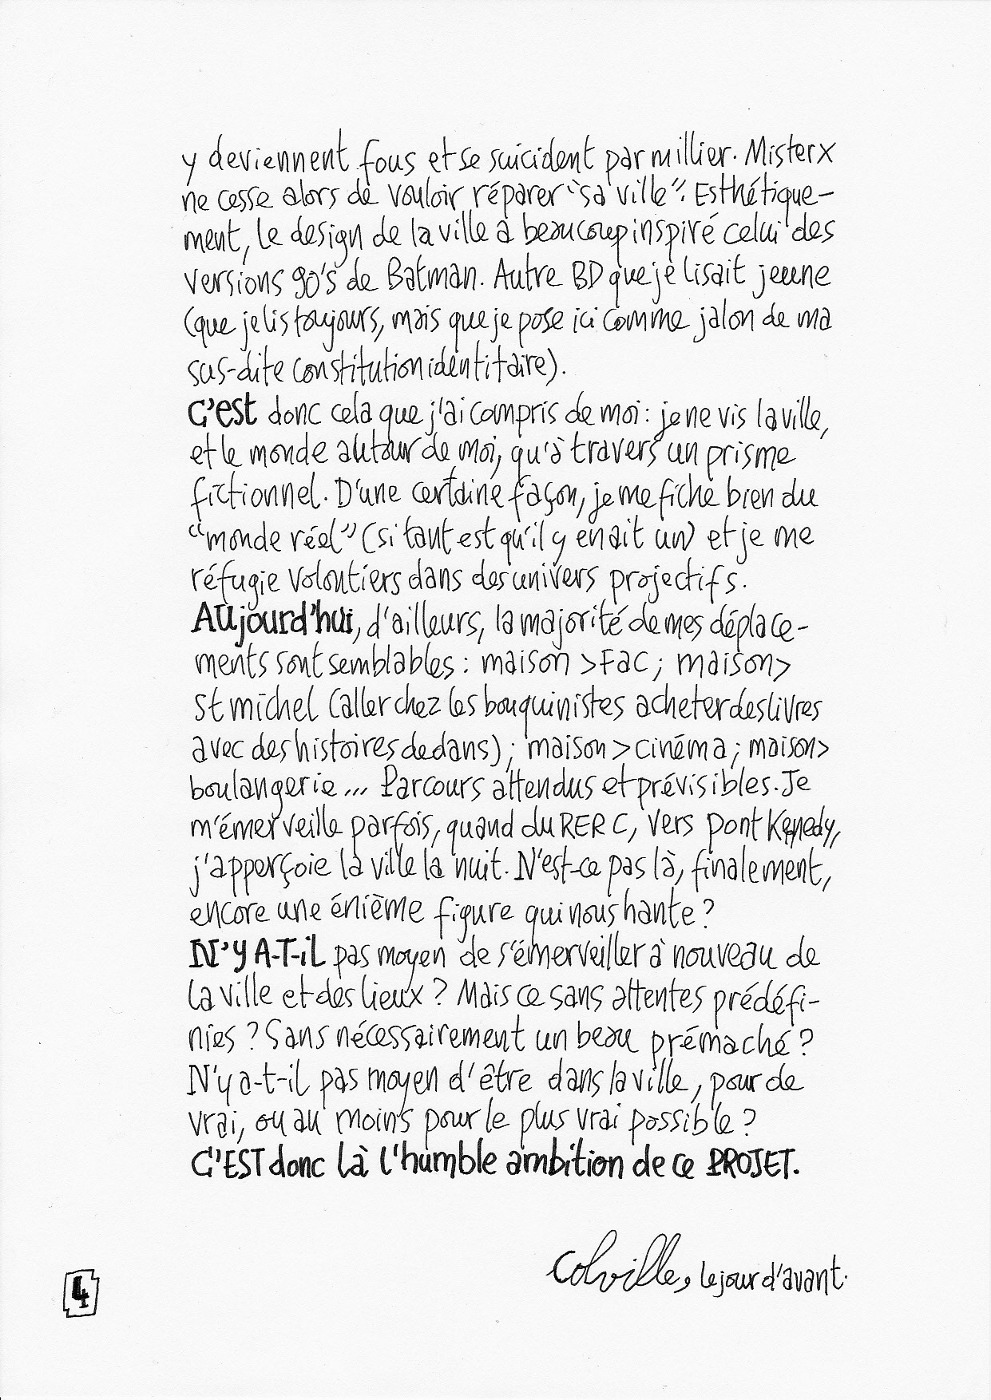 y deviennent fous et se suicident par millier. Mister X
ne cesse alors de vouloir réparer "sa ville". Esthétique-
ment, le design de la ville a beaucoup inspiré celui des
versions 90's de Batman. Autre BD que je lisait jeune
(que je lis toujours, mais que je pose ici comme jalon de ma
sus-dite constitution identitaire).
C'est donc cela que j'ai compris de moi : je ne vis la ville,
et le monde autour de moi, qu'à travers un prisme
fictionnel. D'une certaine façon, je me fiche bien du
"monde réel" (si tant est qu'il y en ait un) et je me
réfugie volontiers dans des univers projectifs.
Aujourd'hui, d'ailleurs, la majorité de mes déplace-
ments sont semblables : maison > Fac ; maison >
St michel (aller chez les bouquinistes acheter des livres
avec des histoires dedans) ; maison > cinéma ; maison >
boulangerie... Parcours attendus et prévisibles. Je
m'émerveille parfois, quand du RER C, vers pont Kennedy,
j'apperçoie la ville la nuit. N'est-ce pas là, finalement,
encore une énième figure qui nous hante ?
N'Y A-T-iL pas moyen de s'émerveiller à nouveau de
la ville et des lieux ? Mais ce sans attentes prédéfi-
nies ? Sans nécessairement un beau prémaché ?
N'y a-t-il pas moyen d'être dans la ville, pour de
vrai, ou au moins pour le plus vrai possible ?
C'EST donc là l'humble ambition de ce PROJET.
Colville, le jour d'avant.
4